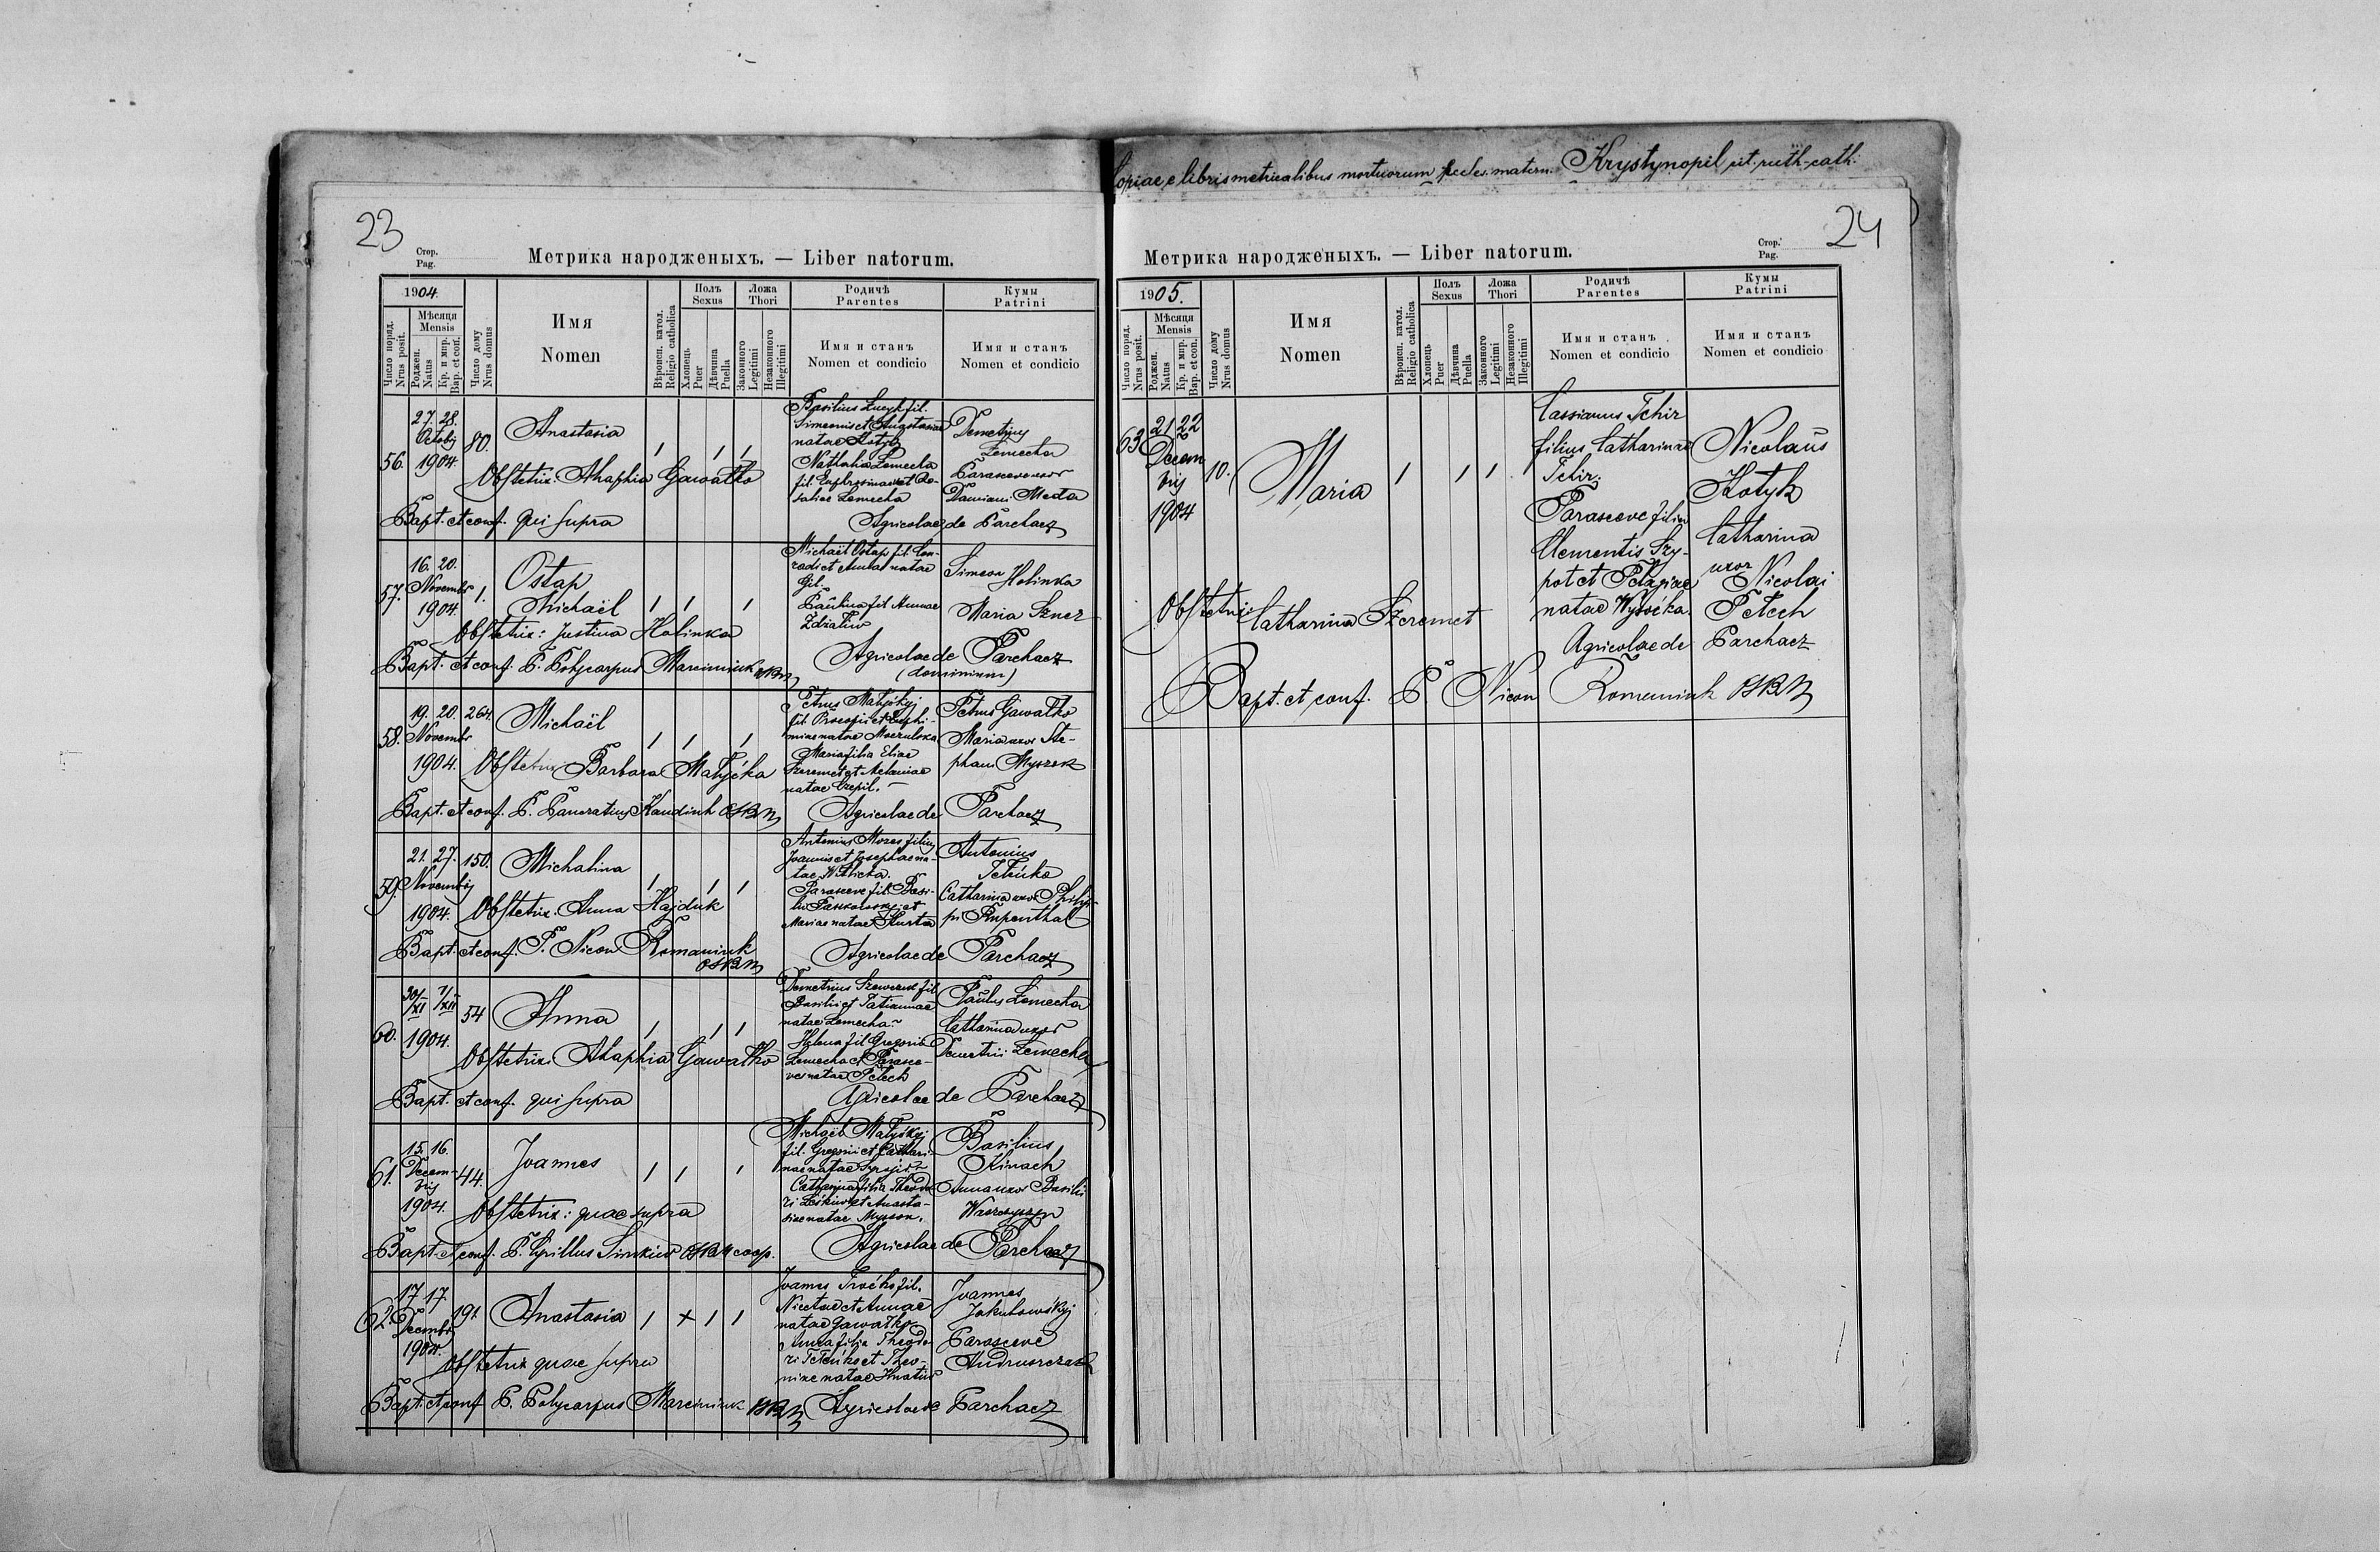 23
Стор.
Pag.
Метрика народженыхъ. — Liber natorum.
1904.
Число поряд.
Nrus posit.
Мѣсяця
Mensis
Роджен.
Natus
Кр. и мир.
Bap. et con.
Число дому
Nrus domus
Имя
Nomen
Вѣроисп. катол.
Religio catholica
Полъ
Sexus
Хлопець
Puer
Дѣвчина
Puella
Ложа
Thori
Законного
Legitimi
Незаконного
Illegitimi
Родичѣ
Parentes
Имя и станъ
Nomen et condicio
Кумы
Patrini
Имя и станъ
Nomen et condicio
56.
27. 28.
Octobj
1904.
80.
Anastasia
Obstetrix. Ahaphia Gawałko
Basilius fil.
Simeonis et Anastasiae
natae Kotyk
Nathalia Lemecha
fil. Euphrosinae et Ro-
saliae Lemecha
Demetrius
Lemecha
Parasceve uxor
Damiani Meda
Bapt. et conf. qui supra
Agricolae de Parchacz
57.
16. 20.
Novembr
1904.
1.
Ostap
Michaël
Obstetrix: Justina Holinka
Michaël Ostap fil. Con-
radi et Annae natae
Gil.
Paulina fil. Annae
Zdzaliw
Simeon Holinka
Maria Sznez
Bapt. et conf. P. Polycarpus Marciniuk OSBM
Agricolae de Parchacz
(dominium)
58.
19. 20.
Novembr
1904.
264.
Michaël
Obstetrix Barbara Matyjćka
Petrus Matyśkyj
fil. Procopii et Euphi-
miae natae
Maria filia Eliae
Szeremet et Melaniae
natae Czepil.
Petrus Gawałko
Maria uxor Ste-
phani Myszok
Bapt. et conf. P. Pancratius Kandiuk OSBM
Agricolae de Parchacz
59.
21. 27.
Novembrj
1904.
150.
Michalina
Obstetrix. Anna Hajduk
Antonius Mozes filius
Joannis et Josephae na-
tae
Parasceve fil. Basi-
lii et
Mariae natae
Antonius
Tetiuka
Catharina uxor Philip-
pi Rupenthal
Bapt. et conf. P. Nicon Romaniuk
OSBM
Agricolae de Parchacz
60.
30/XI 1/XII
1904.
54
Anna
Obstetrix. Ahaphia Gawałko
Demetrius Szewczuk fil.
Basilii et Tatiannae
natae Lemecha.
Helena fil. Gregorii
Lemecha et Parasce-
ve natae Petech
Paulus Lemecha
Catharina uxor
Demetrii Lemecha
Bapt. et conf. qui supra
Agricolae de Parchacz
61.
15. 16.
Decem-
brij
1904.
44.
Joannes
Obstetrix: quae supra
Michaël Matyśkyj
fil. Gregorii et Cathari-
nae natae
Catharina filia Theodo-
ri Leśkiw et Anasta-
siae natae Myszon.
Basilius
Kinach
Anna uxor Basilii
Bapt. et conf. P. Cyrillus Sinkiw OSBM coop.
Agricolae de Parchacz
62.
17 17
Decembr
1904.
191
Anastasia
Obstetrix quae supra
Joannes Troćko fil.
Nicetae et Annae
natae Gawałko
Anna filia Theodo-
ri Teteuko et Theo-
niae natae Hnatiw
Joannes
Jakubowśkyj
Parasceve
Andruszczak
Bapt. et conf. P. Polycarpus Marciniuk OSBM
Agricolae de Parchacz
Copiae e libris metricalibus mortuorum eccles. matern. Krystynopil rit. ruth.-cath.
24
Стор.
Pag.
Метрика народженыхъ. — Liber natorum.
1905.
Число поряд.
Nrus posit.
Мѣсяця
Mensis
Роджен.
Natus
Кр. и мир.
Bap. et con.
Число дому
Nrus domus
Имя
Nomen
Вѣроисп. катол.
Religio catholica
Полъ
Sexus
Хлопець
Puer
Дѣвчина
Puella
Ложа
Thori
Законного
Legitimi
Незаконного
Illegitimi
Родичѣ
Parentes
Имя и станъ
Nomen et condicio
Кумы
Patrini
Имя и станъ
Nomen et condicio
63
21 22
Decem
brij
1904
10.
Maria
Obstetrix Catharina Szeremet
Cassianus Tchir
filius Catharinae
Tchir.
Parasceve filia
Clementis Szy-
pot et Pelagiae
natae Wysoćka.
Nicolaus
Kotyk
Catharina
uxor Nicolai
Petech
Agricolae de Parchacz
Bapt. et conf. P. Nicon Romaniuk OSBM